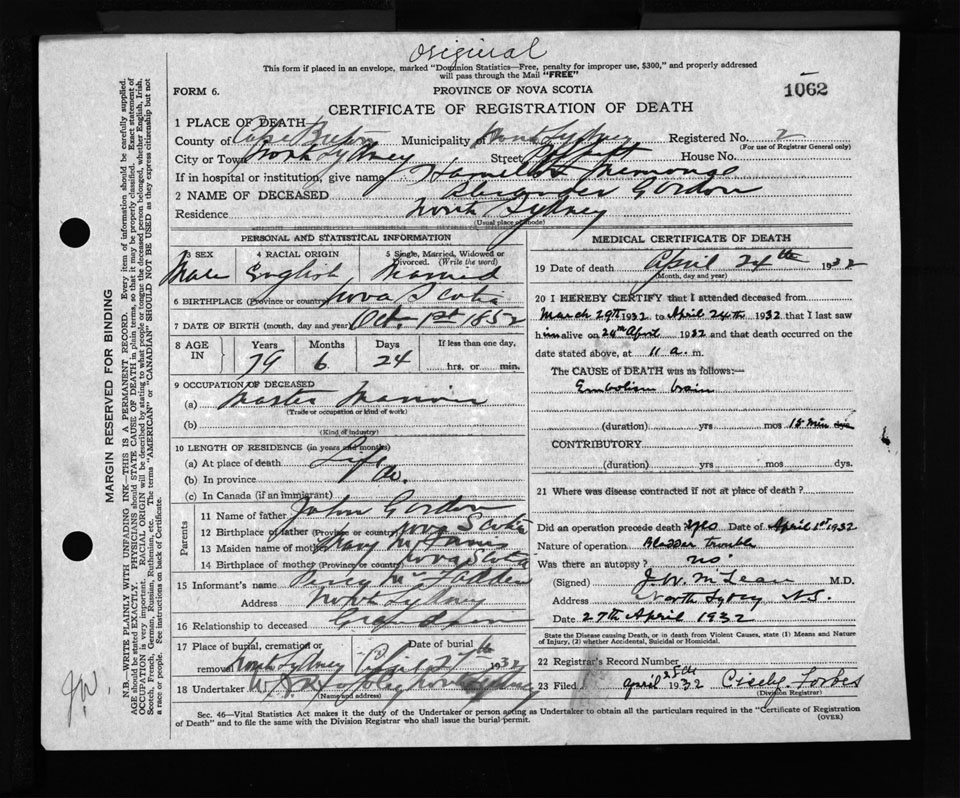 Original
This form if placed in an envelope, marked "Dominion Statistics—Free, penalty for improper use, $300," and properly addressed
will pass through the Mail "FREE"
FORM 6.
PROVINCE OF NOVA SCOTIA
1062
CERTIFICATE OF REGISTRATION OF DEATH
1 PLACE OF DEATH
County of Cape Breton Municipality North Sydney Registered No. 2
(For use of Registrar General only)
City or Town North Sydney Street House No.
If in hospital or institution, give name Hamilton Memorial
2 NAME OF DECEASED Alexander Gordon
Residence North Sydney
(Usual place of abode)
PERSONAL AND STATISTICAL INFORMATION
3 SEX 4 RACIAL ORIGIN 5 Single, Married, Widowed or Divorced. (Write the word)
Male English Married
6 BIRTHPLACE (Province or country) Nova Scotia
7 DATE OF BIRTH (month, day and year) Oct. 1st 1852
8 AGE IN Years Months Days If less than one day,
79 6 24 hrs. or min.
9 OCCUPATION OF DECEASED
(a) Master Mariner
(Trade or occupation or kind of work)
(b)
(Kind of industry)
10 LENGTH OF RESIDENCE (in years and months)
(a) At place of death Life
(b) In province Do.
(c) In Canada (if an immigrant)
Parents
11 Name of father John Gordon
12 Birthplace of father (Province or country) Nova Scotia
13 Maiden name of mother Mary
14 Birthplace of mother (Province or country) Nova Scotia
15 Informant's name Percy McFadden
Address North Sydney
16 Relationship to deceased
17 Place of burial, cremation or removal North Sydney Date of burial April 1932
18 Undertaker North Sydney
(Name and address)
MEDICAL CERTIFICATE OF DEATH
19 Date of death April 24th 1932
(Month, day and year)
20 I HEREBY CERTIFY that I attended deceased from
March 29th 1932 to April 24th 1932 that I last saw
him alive on 24th April 1932 and that death occurred on
date stated above, at 11 a. m.
The CAUSE of DEATH was as follows:—
Embolism brain
(duration) yrs mos 15 min dys
CONTRIBUTORY
(duration) yrs. mos. dys.
21 Where was disease contracted if not at place of death?
Did an operation precede death? Yes Date of April 1st 1932
Nature of operation Bladder trouble
Was there an autopsy? no
(Signed) J.W. McLean M.D.
Address North Sydney N.S.
Date 27th April 1932
State the Disease causing Death, or in death from Violent Causes, state (1) Means and Nature
of Injury, (2) whether Accidental, Suicidal or Homicidal.
22 Registrar's Record Number
23 Filed April 28th 1932 Forbes
(Division Registrar)
Sec. 46—Vital Statistics Act makes it the duty of the Undertaker or person acting as Undertaker to obtain all the particulars required in the "Certificate of Registration
of Death" and to file the same with the Division Registrar who shall issue the burial permit.
(OVER)
MARGIN RESERVED FOR BINDING
N.B.—WRITE PLAINLY WITH UNFADING INK—THIS IS A PERMANENT RECORD. Every item of information should be carefully supplied.
AGE should be stated EXACTLY. PHYSICIANS should STATE CAUSE OF DEATH in plain terms, so that it may be properly classified. Exact statement of
OCCUPATION is very important. RACIAL ORIGIN will be described by stating to what people or tongue the deceased person belonged, whether English, Irish,
Scotch, French, German, Russian, Ruthenian, etc. The terms "AMERICAN" or "CANADIAN" SHOULD NOT BE USED as they express citizenship but not
a race or people. See instructions on back of Certificate.